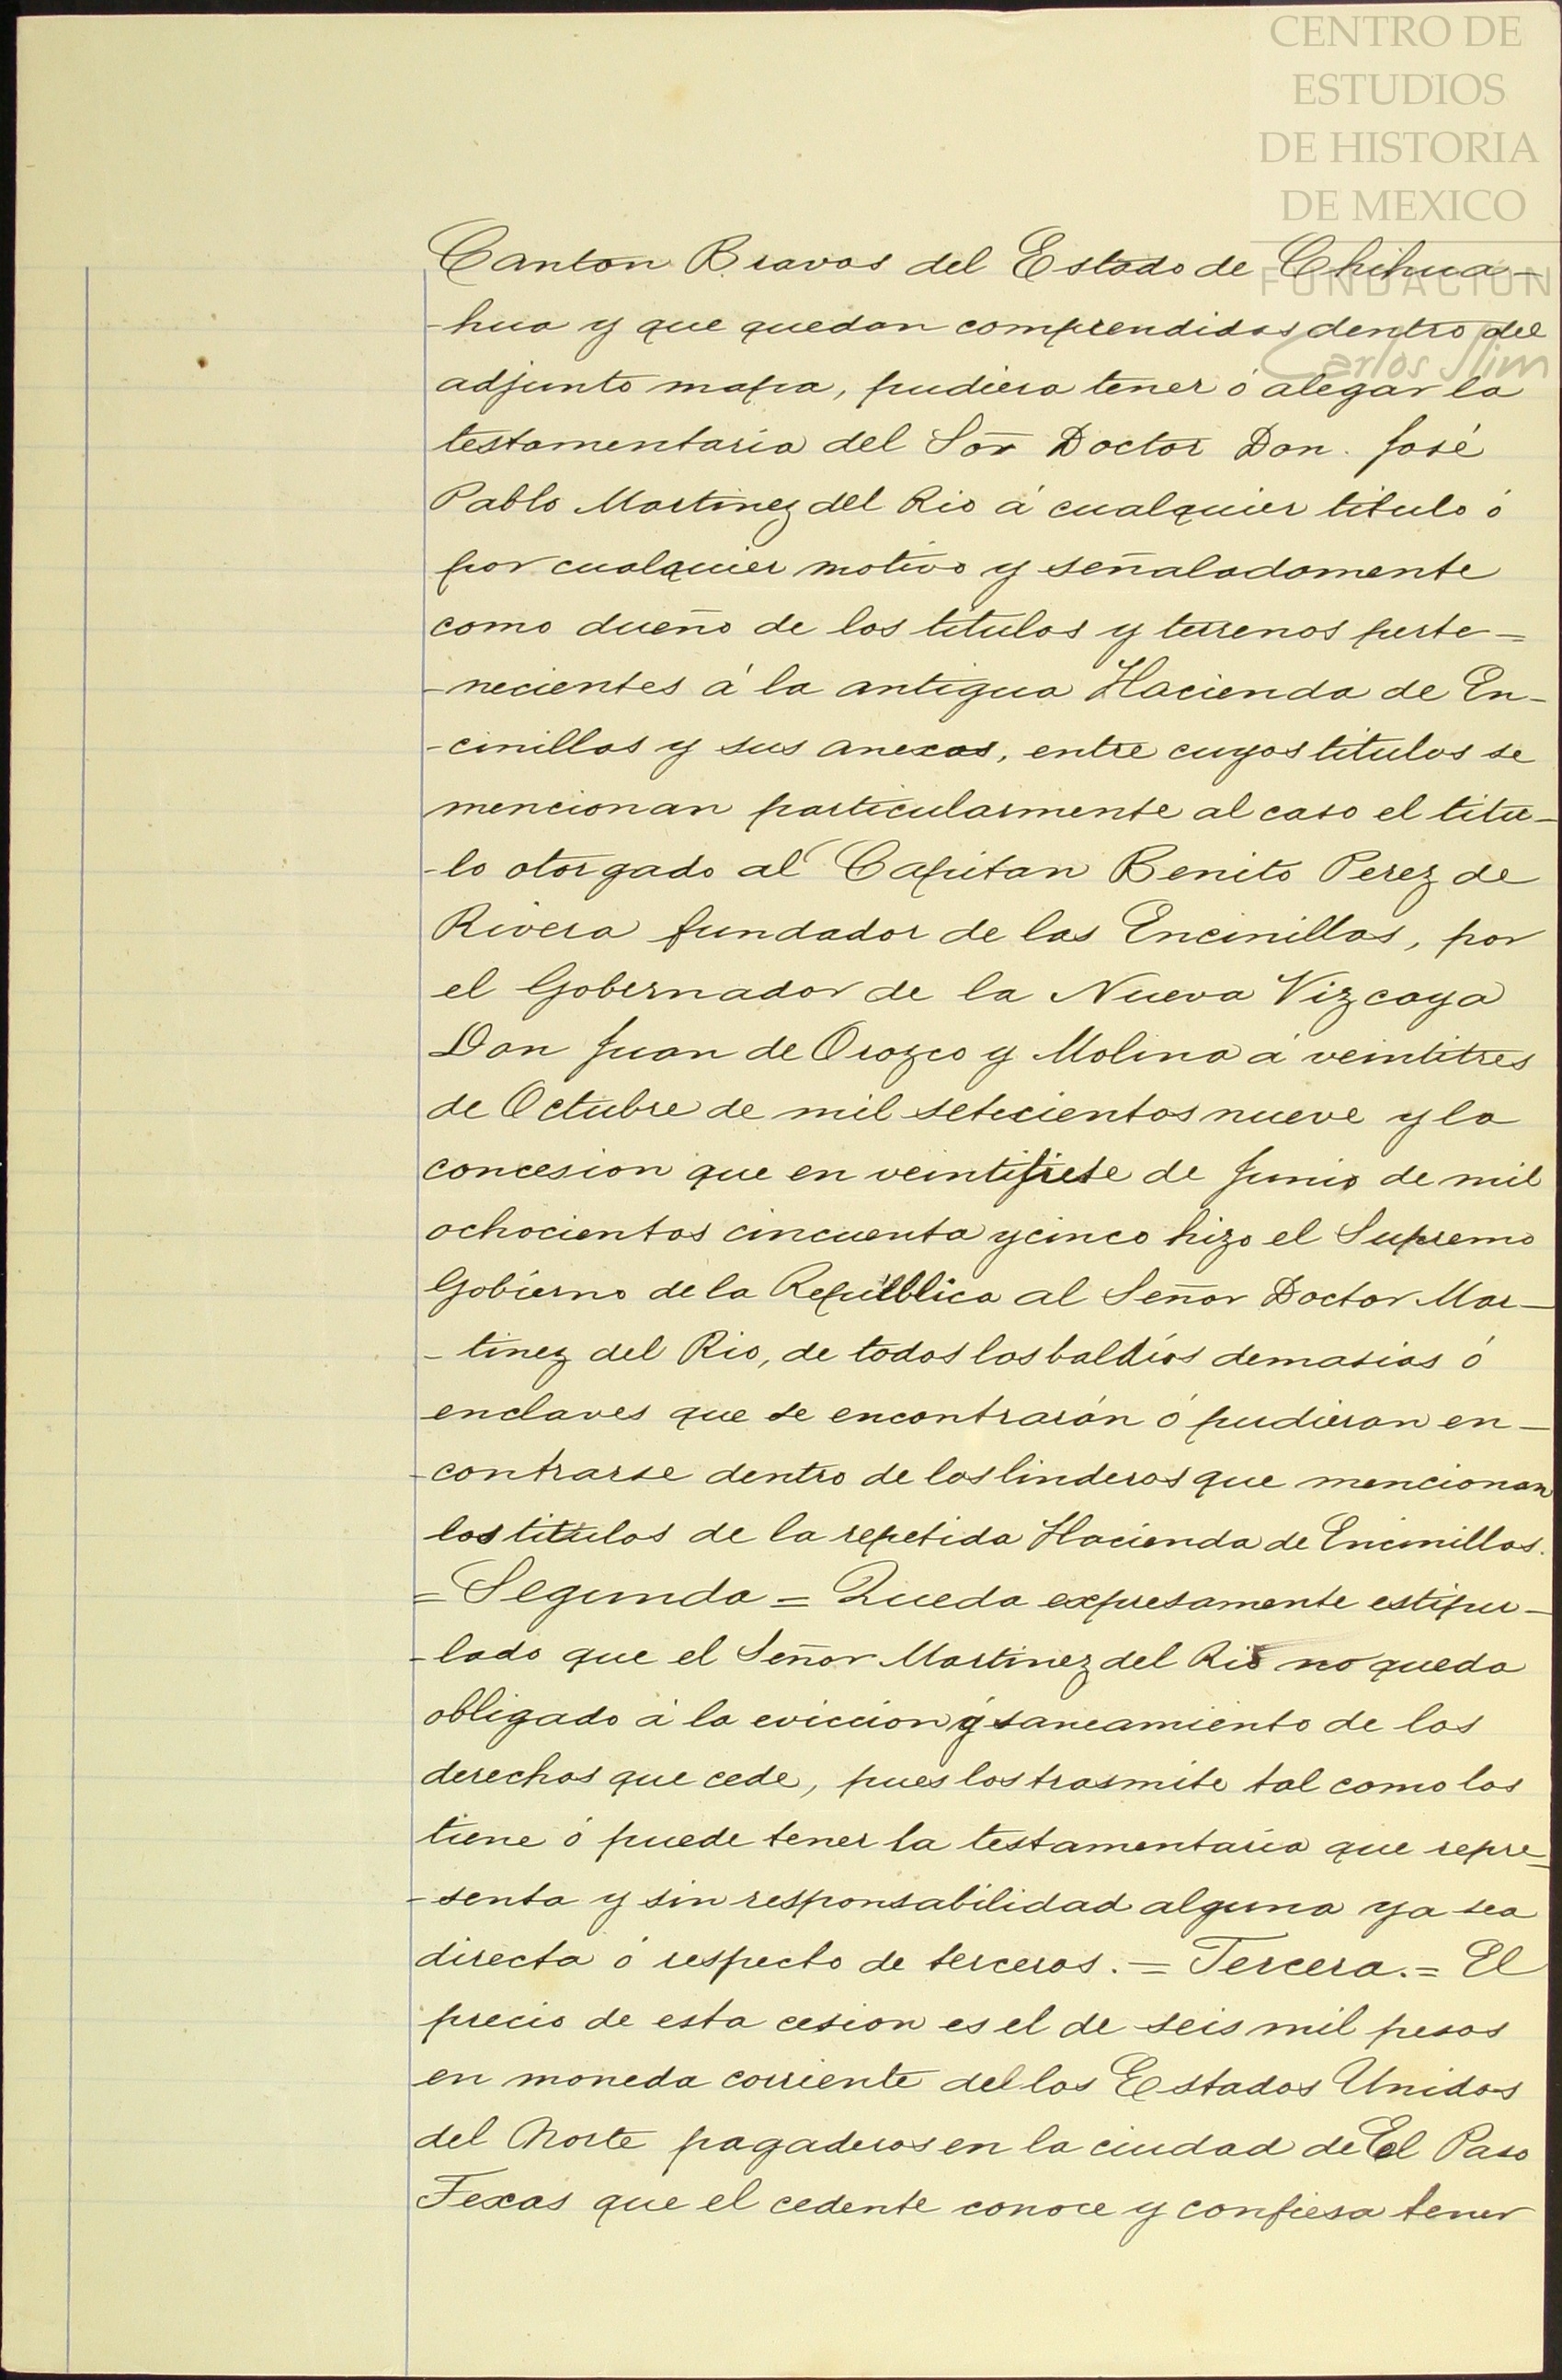 CENTRO DE
ESTUDIOS
DE HISTORIA
DE MEXICO
FUNDACION
Carlos Slim
Canton Bravos del Estado de Chihua-
-hua y que quedan comprendidos dentro del
adjunto mapa, pudiera tener ó alegar la
testamentaria del Sor Doctor Don. José
Pablo Martinez del Rio á cualquier titulo ó
por cualquier motivo y señaladamente
como dueño de los titulos y terrenos perte=
-necientes á la antigua Hacienda de En-
-cinillas y sus anexas, entre cuyos titulos se
mencionan particularmente al caso el titu-
-lo otorgado al Capitan Benito Perez de
Rivera fundador de las Encinillas, por
el Gobernador de la Nueva Vizcaya
Don Juan de Orozco y Molina á veintitres
de Octubre de mil setecientos nueve y la
concesion que en veintisiete de Junio de mil
ochocientos cincuenta y cinco hizo el Supremo
Gobierno de la República al Señor Doctor Mar-
-tinez del Rio, de todos los baldíos demasias ó
enclaves que se encontrarán ó pudieran en-
-contrarse dentro de los linderos que mencionan
los titulos de la repetida Hacienda de Encinillas.
=Segunda= Queda expresamente estipu-
-lado que el Señor Martinez del Rio no queda
obligado á la eviccion y saneamiento de los
derechos que cede, pues los trasmite tal como los
tiene ó puede tener la testamentaria que repre=
-senta y sin responsabilidad alguna ya sea
directa ó respecto de terceros.=Tercera.=El
precio de esta cesion es el de seis mil pesos
en moneda corriente del los Estados Unidos
del Norte pagaderos en la ciudad de El Paso
Texas que el cedente conoce y confiesa tener